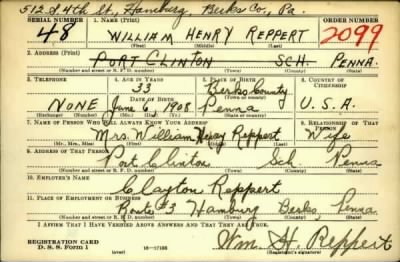 512 S. 4th St., Hamburg, Berks Co., Pa.
SERIAL NUMBER 1. NAME (Print) ORDER NUMBER
48 WILLIAM HENRY REPPERT 2099
(First) (Middle) (Last)
2. ADDRESS (Print)
PORT CLINTON SCH. PENNA.
(Number and street or R. F. D. number) (Town) (County) (State)
3. TELEPHONE 4. AGE IN YEARS 5. PLACE OF BIRTH 6. COUNTRY OF CITIZENSHIP
33 Berks County
NONE DATE OF BIRTH (Town or county)
June 6, 1908 Penna U.S.A.
(Exchange) (Number) (Mo.) (Day) (Yr.) (State or country)
7. NAME OF PERSON WHO WILL ALWAYS KNOW YOUR ADDRESS 8. RELATIONSHIP OF THAT PERSON
Mrs. William Henry Reppert Wife
(Mr., Mrs., Miss) (First) (Middle) (Last)
9. ADDRESS OF THAT PERSON
Port Clinton Sch Penna
(Number and street or R. F. D. number) (Town) (County) (State)
10. EMPLOYER'S NAME
Clayton Reppert
11. PLACE OF EMPLOYMENT OR BUSINESS
Route #3 Hamburg Berks, Penna
(Number and street or R. F. D. number) (Town) (County) (State)
I AFFIRM THAT I HAVE VERIFIED ABOVE ANSWERS AND THAT THEY ARE TRUE.
REGISTRATION CARD
D. S. S. Form 1 (over) 16—17105 Wm. H. Reppert
(Registrant's signature)